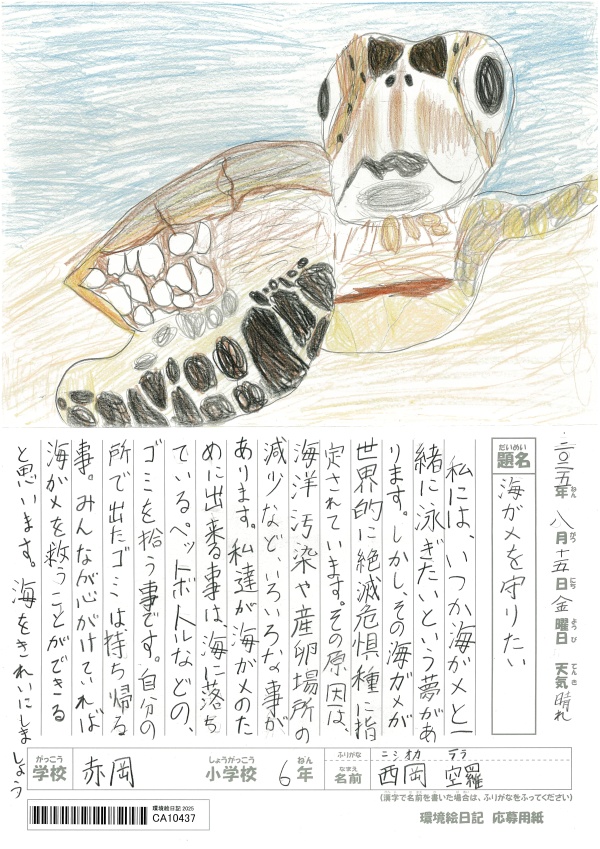 二〇二五年 八月 十五日 金曜日 天気 晴れ
ねん がつ にち ようび てんき
だいめい
題名 海ガメを守りたい
私には、いつか海ガメと一
緒に泳ぎたいという夢があ
ります。しかし、その海ガメが
世界的に絶滅危惧種に指
定されています。その原因は、
海洋汚染や産卵場所の
減少など、いろいろな事が
あります。私達が海ガメのた
めに出来る事は、海に落ち
ているペットボトルなどの、
ゴミを拾う事です。自分の
所で出たゴミは持ち帰る
事。みんなが心がけていれば
海ガメを救うことができる
と思います。海をきれいにしましょう
がっこう しょうがっこう ねん ふりがな ニシオカ テラ
学校 赤岡 小学校 6年 なまえ 名前 西岡 空羅
(漢字で名前を書いた場合は、ふりがなをふってください)
環境絵日記 2025
CA10437
環境絵日記 応募用紙